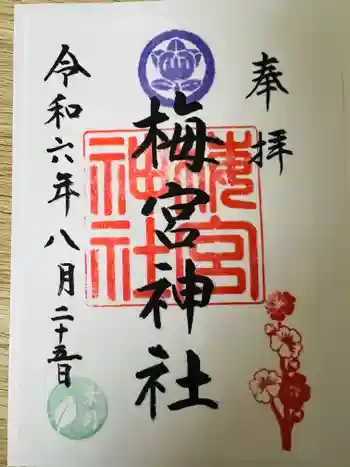 奉拝
梅宮神社
梅宮
神社
令和六年八月二十五日
葉月